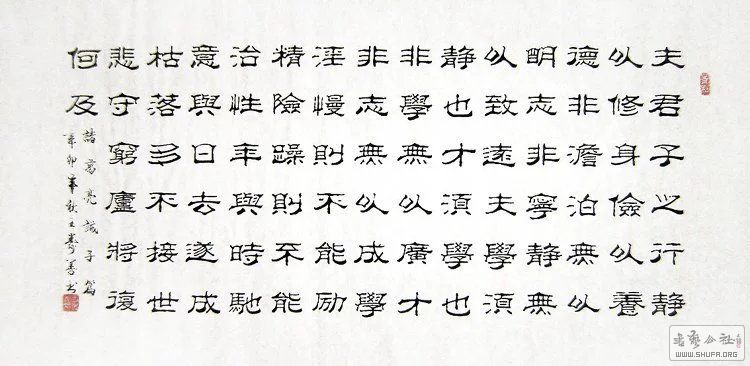 夫君子之行靜
以修身儉以養
德非澹泊無以
明志非寧靜無
以致遠夫學須
靜也才須學也
非學無以廣才
非志無以成學
淫慢則不能励
精險躁則不能
治性年與時馳
意與日去遂成
枯落多不接世
悲守窮廬將復
何及
諸葛亮誡子篇
辛卯年秋王善书
WWW.SHUFA.ORG